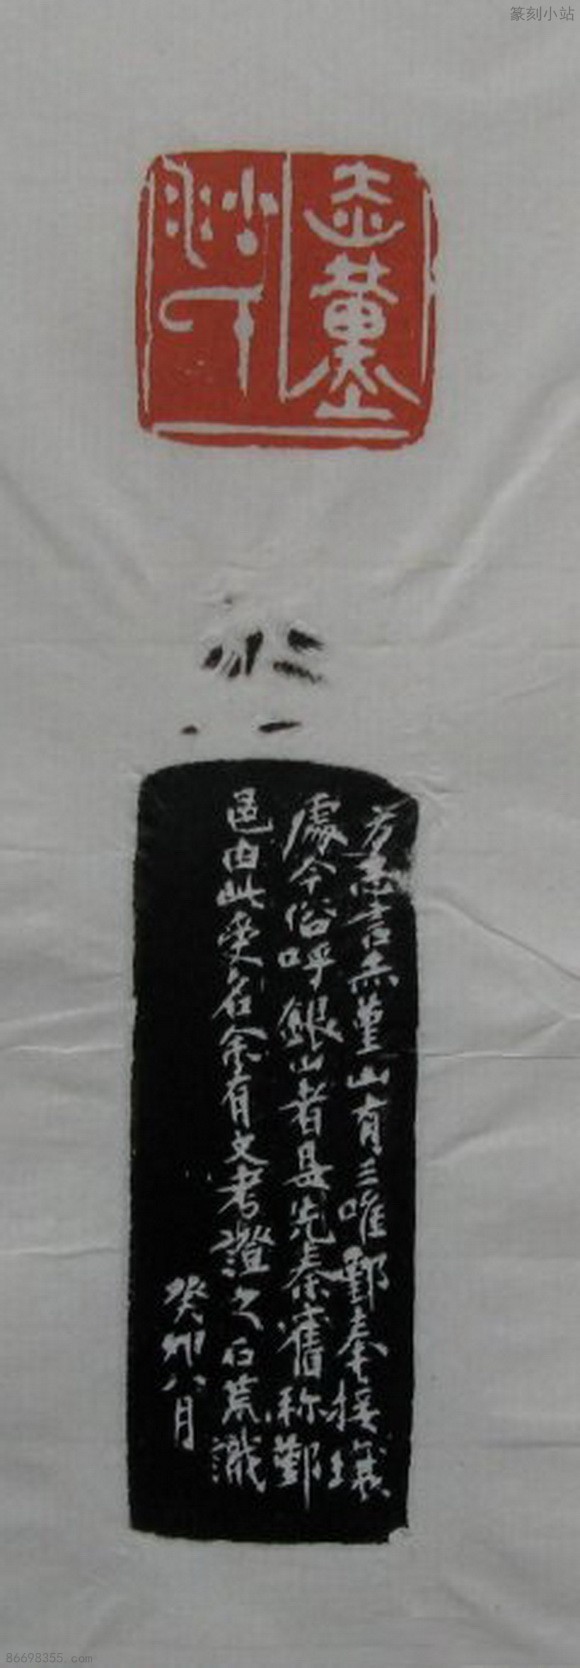 篆刻小站
赤堇山
下
方志言赤堇山有三唯鄞奉接壤
處今俗呼銀山者是先秦舊称鄞
邑由此受名余有文考證之石荒識
癸卯八月
86698355.com